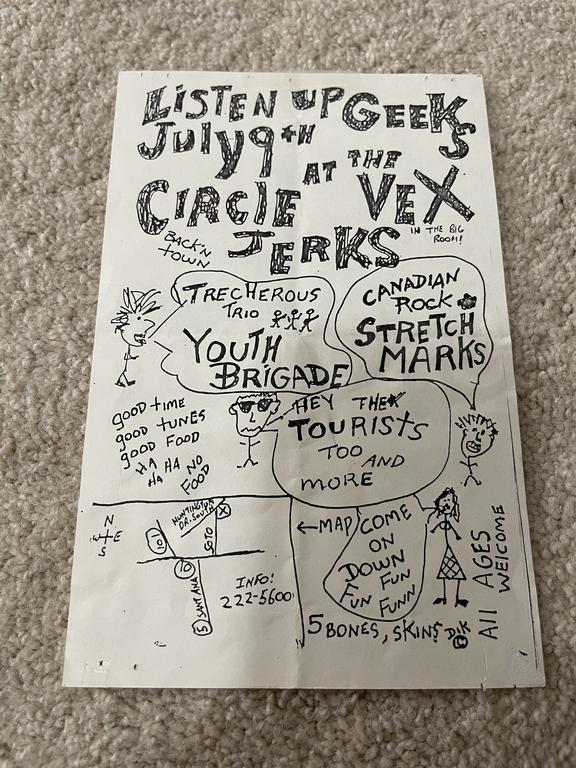 LISTEN UP GEEKS
July 9TH
AT THE
CIRCLE VEX
JERKS
IN THE BIG
ROOM!
BACK'N
TOWN
TRECHEROUS
TRIO
YOUTH
BRIGADE
CANADIAN
ROCK
STRETCH
MARKS
GOOD TIME
GOOD TUNES
GOOD FOOD
HA HA NO
HA FOOD
HEY THE
TOURISTS
TOO AND
MORE
N
W E
S
HUNTINGTON
DR. SOUTH
X
SOTO
10
SANTANA
5
INFO!
222-5600
←MAP
COME
ON
DOWN
FUN FUN
FUN FUNN
All AGES
WELCOME
5 BONES, SKINS